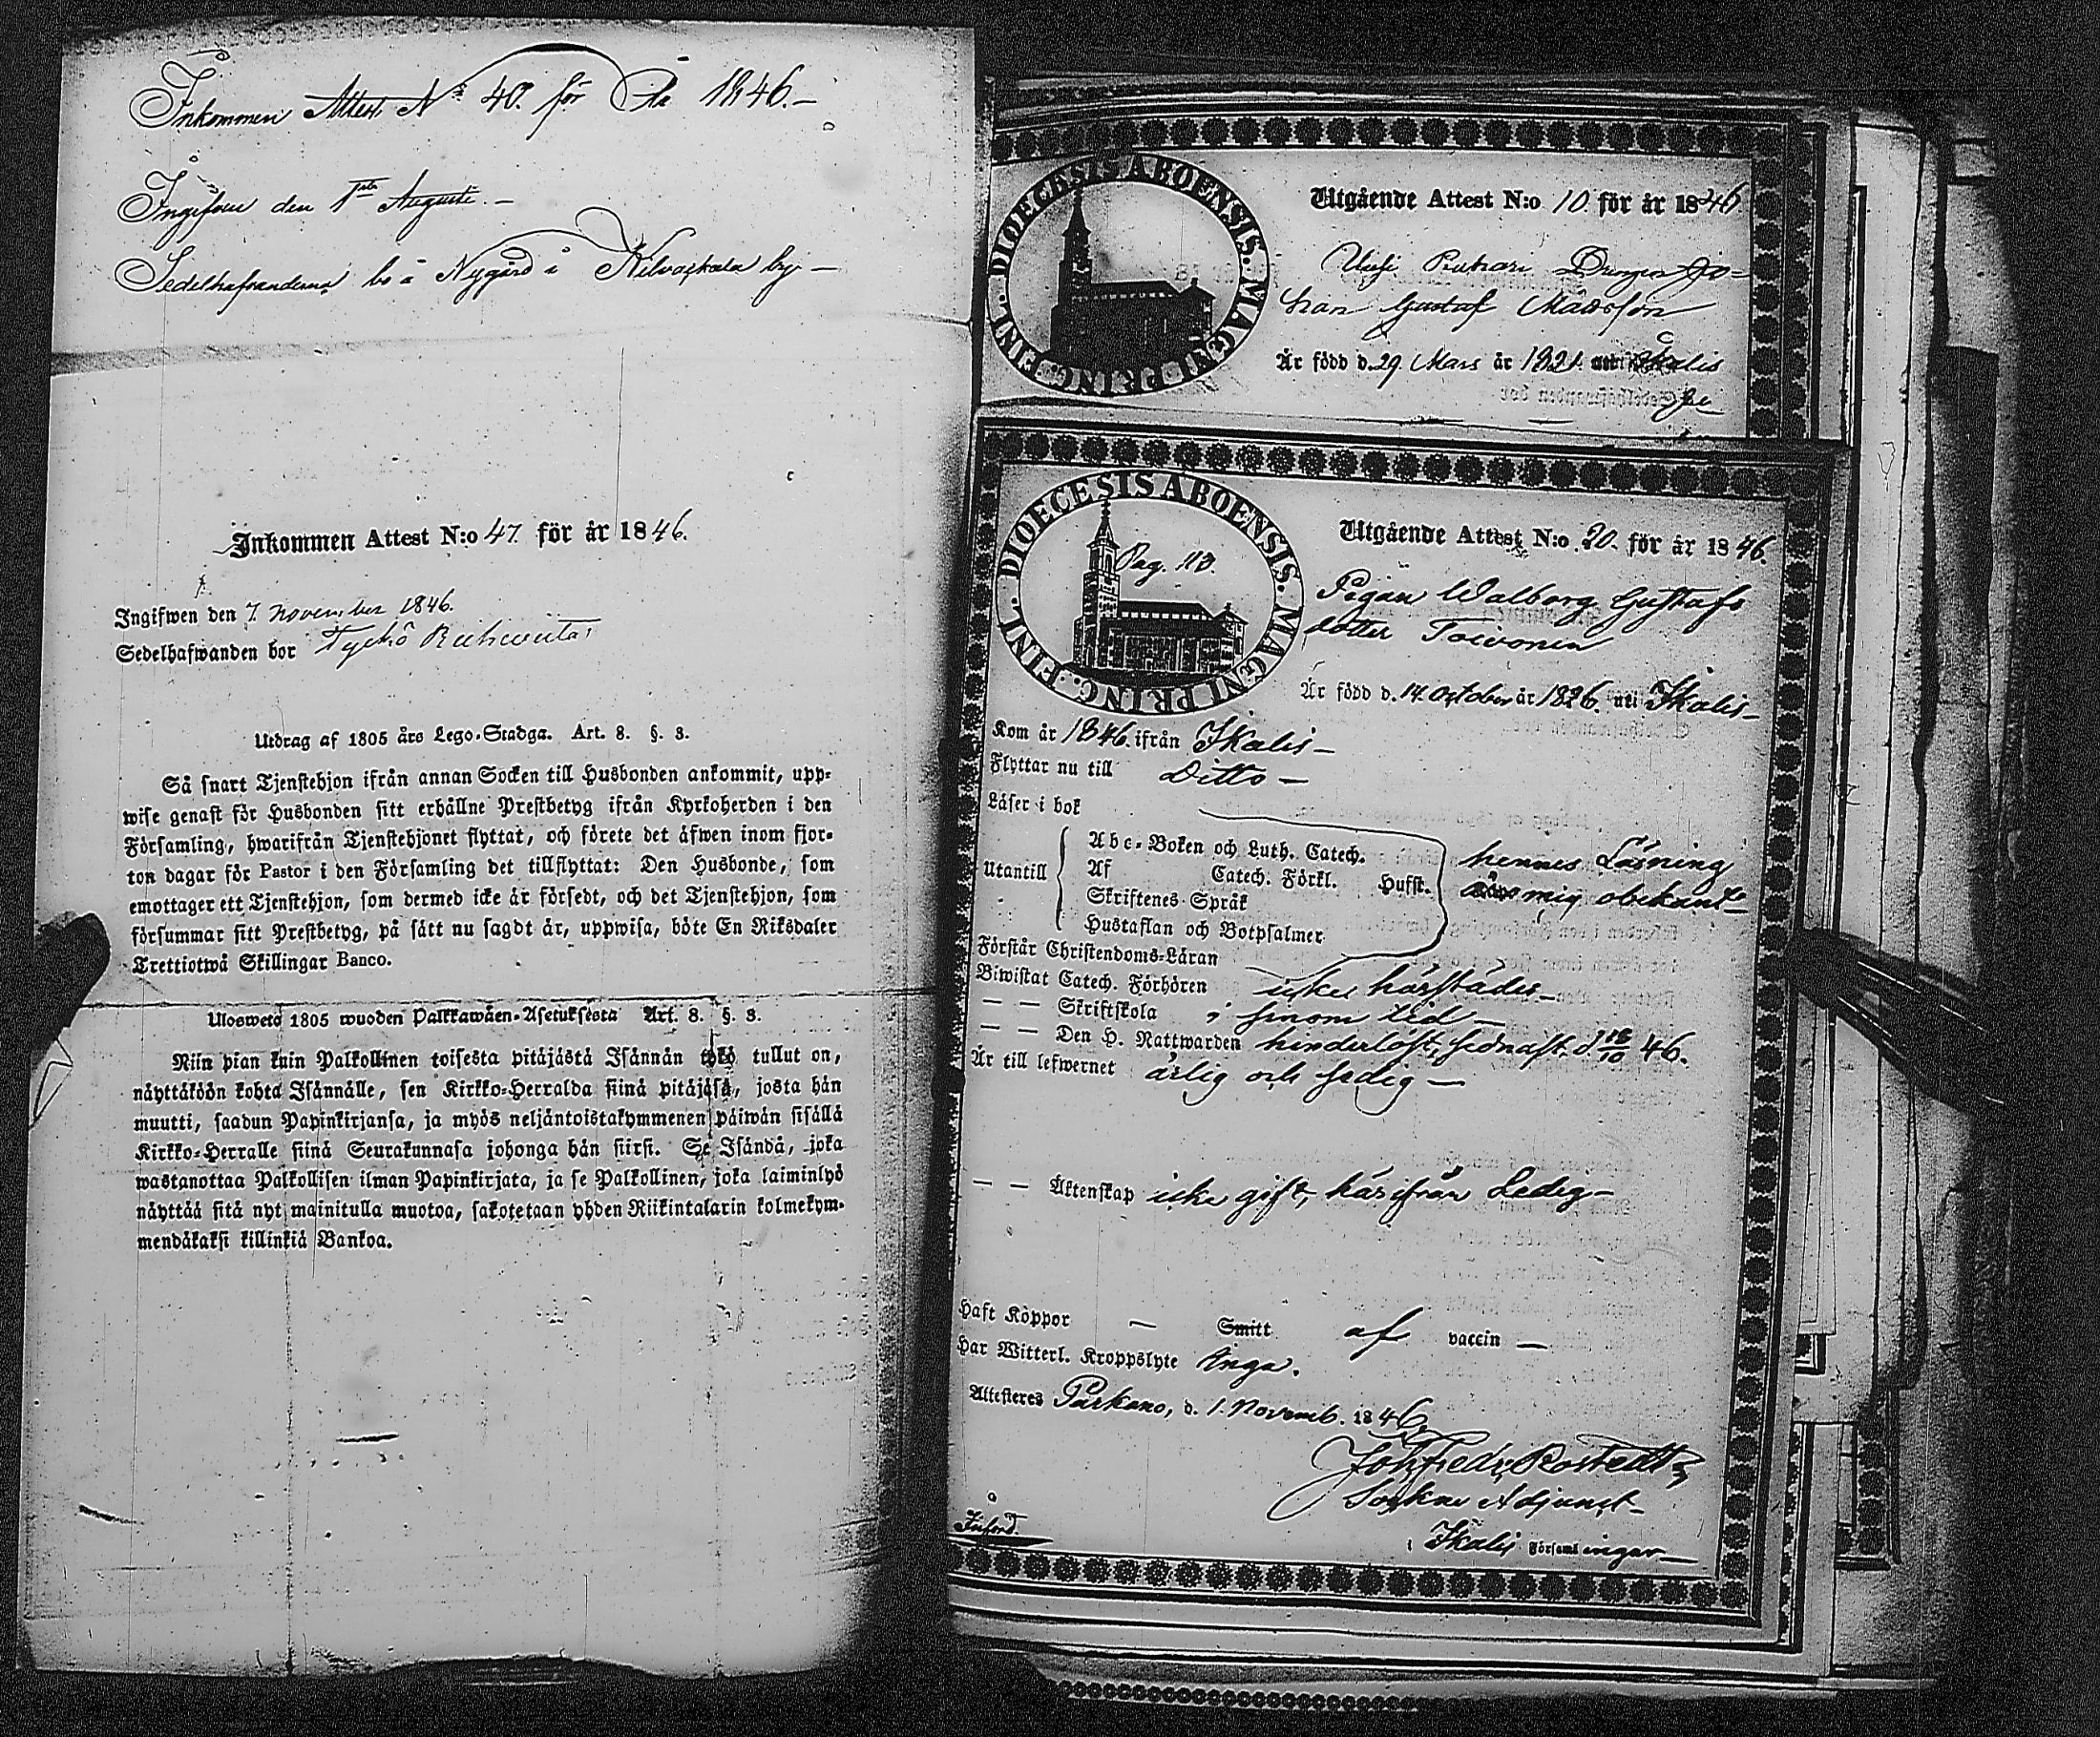 Inkommen Attest N:o 40. för Åå 1846.
Ingifven den 1sta Augusti.
Sedelhafvanderna bo å Nygård i Kilvaskala by
Inkommen Attest N:o 47. för år 1846.
Ingifwen den 7. November 1846.
Sedelhafwanden bor Tyckö
Utdrag af 1805 års Lego-Stadga. Art. 8. §. 3.
Så snart Tjenstehjon ifrån annan Socken till Husbonden ankommit, upp-
wise genast för Husbonden sitt erhållne Prestbetyg ifrån Kyrkoherden i den
Församling, hwarifrån Tjenstehjonet flyttat, och förete det äfwen inom fjor-
ton dagar för Pastor i den Församling det tillflyttat: Den Husbonde, som
emottager ett Tjenstehjon, som dermed icke är försedt, och det Tjenstehjon, som
försummar sitt Prestbetyg, på sätt nu sagdt är, uppwisa, böte En Riksdaler
Trettiotwå Skillingar Banco.
Uloswetä 1805 wuoden Palkkawäen-Asetuksesta Art. 8. §. 3.
Niin pian kuin Palkollinen toisesta pitäjästä Isännän tykö tullut on,
näyttäköön kohta Isännälle, sen Kirkko-Herralda siinä pitäjäsä, josta hän
muutti, saadun Papinkirjansa, ja myös neljäntoistakymmenen päiwän sisällä
Kirkko-Herralle siinä Seurakunnasa johonga hän siirsi. Se Isändä, joka
wastanottaa Palkollisen ilman Papinkirjata, ja se Palkollinen, joka laiminlyö
näyttää sitä nyt mainitulla muotoa, sakotetaan yhden Riikintalarin kolmekym-
mendäkaksi killinkiä Bankoa.
DIOECESIS ABOENSIS. MAGNI PRINC. FINL.
Utgående Attest N:o 10. för år 1846
Drengen Jo-
han Gustaf Mattsson
År född d. 29. Mars år 1821. uti Ikalis
DIOECESIS ABOENSIS. MAGNI PRINC. FINL.
Pag. 113.
Utgående Attest N:o 20. för år 1846.
Pigan Walborg Gustafs
dotter Toivonen
År född d. 14. october år 1826. uti Ikalis
Kom år 1846. ifrån Ikalis
Flyttar nu till Ditto
Läser i bok
Utantill
Abc-Boken och Luth. Catech.
Af Catech. Förkl. Hufst.
Skriftenes Språk
Hustaflan och Botpsalmer
hennes Läsning
mig obekant
Förstår Christendoms-Läran
Biwistat Catech. Förhören icke härstädes
— — Skriftskola i sinom tid
— — Den H. Nattwarden hinderlöst, sednast d. 18/10 46.
Är till lefwernet ärlig och sedig
— — Äktenskap icke gift, härifrån Ledig
Haft Koppor — Smitt af vaccin —
Har Witterl. Kroppslyte Inga.
Attesteres Parkano, d. 1. Novemb. 1846
Joh. Fredr. Rostedt
Sockne Adjunct
i Ikalis Församlingar
Införd